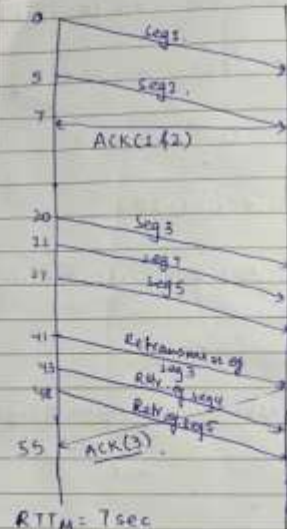 0
Seg1
5
Seg2
7
ACK(1&2)
20
Seg 3
21
seg4
27
seg5
41
Retransmission of
seg3
43
Retr. of seg4
48
Retr of seg5
55
ACK(3)
RTTM = 7 sec